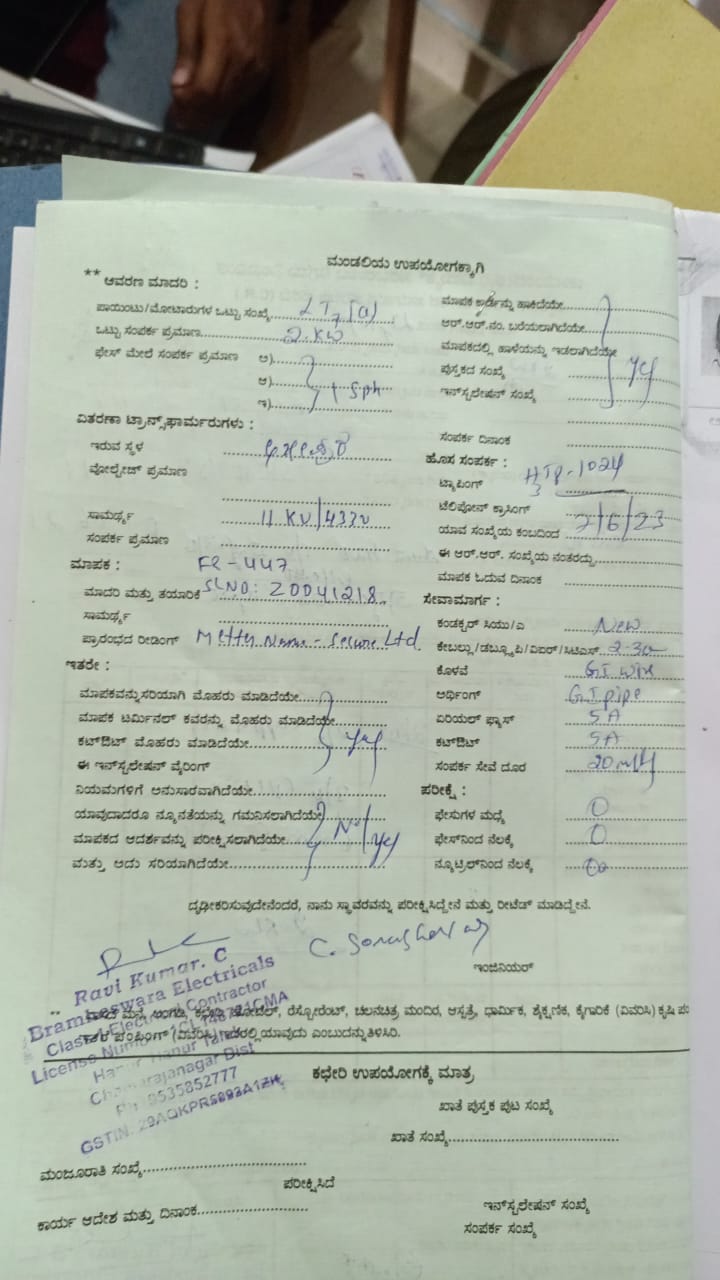 ಮಂಡಲಿಯ ಉಪಯೋಗಕ್ಕಾಗಿ
** ಆವರಣ ಮಾದರಿ :
ಪಾಯಿಂಟು/ಮೋಟಾರುಗಳ ಒಟ್ಟು ಸಂಖ್ಯೆ
ಒಟ್ಟು ಸಂಪರ್ಕ ಪ್ರಮಾಣ 2.KW
ಫೇಸ್ ಮೇಲೆ ಸಂಪರ್ಕ ಪ್ರಮಾಣ ಅ)
ಆ)
ಇ)
ವಿತರಣಾ ಟ್ರಾನ್ಸ್‌ಫಾರ್ಮರುಗಳು :
ಇರುವ ಸ್ಥಳ
ವೋಲ್ಟೇಜ್ ಪ್ರಮಾಣ
ಸಾಮರ್ಥ್ಯ 11 KV/433v
ಸಂಪರ್ಕ ಪ್ರಮಾಣ
ಮಾಪಕ : FR-447
ಮಾದರಿ ಮತ್ತು ತಯಾರಿಕೆ SLNO: Z0041218
ಸಾಮರ್ಥ್ಯ
ಪ್ರಾರಂಭದ ರೀಡಿಂಗ್ Metter Name - Secure Ltd.
ಇತರೇ :
ಮಾಪಕವನ್ನು ಸರಿಯಾಗಿ ಮೊಹರು ಮಾಡಿದೆಯೇ
ಮಾಪಕ ಟರ್ಮಿನಲ್ ಕವರನ್ನು ಮೊಹರು ಮಾಡಿದೆಯೇ
ಕಟ್‌ಔಟ್ ಮೊಹರು ಮಾಡಿದೆಯೇ yes
ಈ ಇನ್‌ಸ್ಟಲೇಷನ್ ವೈರಿಂಗ್
ನಿಯಮಗಳಿಗೆ ಅನುಸಾರವಾಗಿದೆಯೇ
ಯಾವುದಾದರೂ ನ್ಯೂನತೆಯನ್ನು ಗಮನಿಸಲಾಗಿದೆಯೇ
ಮಾಪಕದ ಆದರ್ಶವನ್ನು ಪರೀಕ್ಷಿಸಲಾಗಿದೆಯೇ No yes
ಮತ್ತು ಅದು ಸರಿಯಾಗಿದೆಯೇ
ಮಾಪಕ ಕಾರ್ಡನ್ನು ಹಾಕಿದೆಯೇ
ಆರ್.ಆರ್.ನಂ. ಬರೆಯಲಾಗಿದೆಯೇ
ಮಾಪಕದಲ್ಲಿ ಹಾಳೆಯನ್ನು ಇಡಲಾಗಿದೆಯೇ
ಪುಸ್ತಕದ ಸಂಖ್ಯೆ yes
ಇನ್‌ಸ್ಟಲೇಷನ್ ಸಂಖ್ಯೆ
ಸಂಪರ್ಕ ದಿನಾಂಕ
ಹೊಸ ಸಂಪರ್ಕ :
ಟ್ಯಾಪಿಂಗ್
ಟೆಲಿಫೋನ್ ಕ್ರಾಸಿಂಗ್
ಯಾವ ಸಂಖ್ಯೆಯ ಕಂಬದಿಂದ 7/6/23
ಈ ಆರ್.ಆರ್. ಸಂಖ್ಯೆಯ ನಂತರದ್ದು
ಮಾಪಕ ಓದುವ ದಿನಾಂಕ
ಸೇವಾಮಾರ್ಗ :
ಕಂಡಕ್ಟರ್ ಸಿಯು/ಎ New
ಕೇಬಲ್ಲು/ಡಬ್ಲ್ಯೂಪಿ/ವಿಐಆರ್/ಸಿಟಿಎಸ್
ಕೊಳವೆ GI wire
ಅರ್ಥಿಂಗ್ G.I pipe
ಏರಿಯಲ್ ಫ್ಯೂಸ್ 5A
ಕಟ್‌ಔಟ್ 5A
ಸಂಪರ್ಕ ಸೇವೆ ದೂರ
ಪರೀಕ್ಷೆ :
ಫೇಸುಗಳ ಮಧ್ಯೆ 0
ಫೇಸ್‌ನಿಂದ ನೆಲಕ್ಕೆ 0
ನ್ಯೂಟ್ರಲ್‌ನಿಂದ ನೆಲಕ್ಕೆ
ದೃಢೀಕರಿಸುವುದೇನೆಂದರೆ, ನಾನು ಸ್ಥಾವರವನ್ನು ಪರೀಕ್ಷಿಸಿದ್ದೇನೆ ಮತ್ತು ರೀಟೆಡ್ ಮಾಡಿದ್ದೇನೆ.
ಇಂಜಿನಿಯರ್
Ravi Kumar. C
Bramheswara Electricals
Class I Electrical Contractor
License Number
Hanur Hanur Taluk
Chamarajanagar Dist
Ph: 9535852777
GSTIN:
** ವಾಸದ ಮನೆ, ಅಂಗಡಿ, ಕಛೇರಿ, ಹೋಟೆಲ್, ರೆಸ್ಟೋರೆಂಟ್, ಚಲನಚಿತ್ರ ಮಂದಿರ, ಆಸ್ಪತ್ರೆ, ಧಾರ್ಮಿಕ, ಶೈಕ್ಷಣಿಕ, ಕೈಗಾರಿಕೆ (ವಿವರಿಸಿ) ಕೃಷಿ
ಇತರೆ ಪಂಪಿಂಗ್ (ವಿವರಿಸಿ) ಇದರಲ್ಲಿ ಯಾವುದು ಎಂಬುದನ್ನು ತಿಳಿಸಿರಿ.
ಕಛೇರಿ ಉಪಯೋಗಕ್ಕೆ ಮಾತ್ರ
ಖಾತೆ ಪುಸ್ತಕ ಪುಟ ಸಂಖ್ಯೆ
ಖಾತೆ ಸಂಖ್ಯೆ
ಮಂಜೂರಾತಿ ಸಂಖ್ಯೆ
ಪರೀಕ್ಷಿಸಿದೆ
ಕಾರ್ಯ ಆದೇಶ ಮತ್ತು ದಿನಾಂಕ
ಇನ್‌ಸ್ಟಲೇಷನ್ ಸಂಖ್ಯೆ
ಸಂಪರ್ಕ ಸಂಖ್ಯೆ